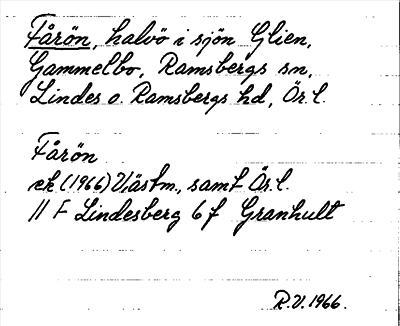 Fårön, halvö i sjön Glien,
Gammelbo, Ramsbergs sn,
Lindes o. Ramsbergs hd, Ör. l.
Fårön
ek (1966) Västm., samt Ör. l.
11 F Lindesberg 6 f Granhult
R.V. 1966.